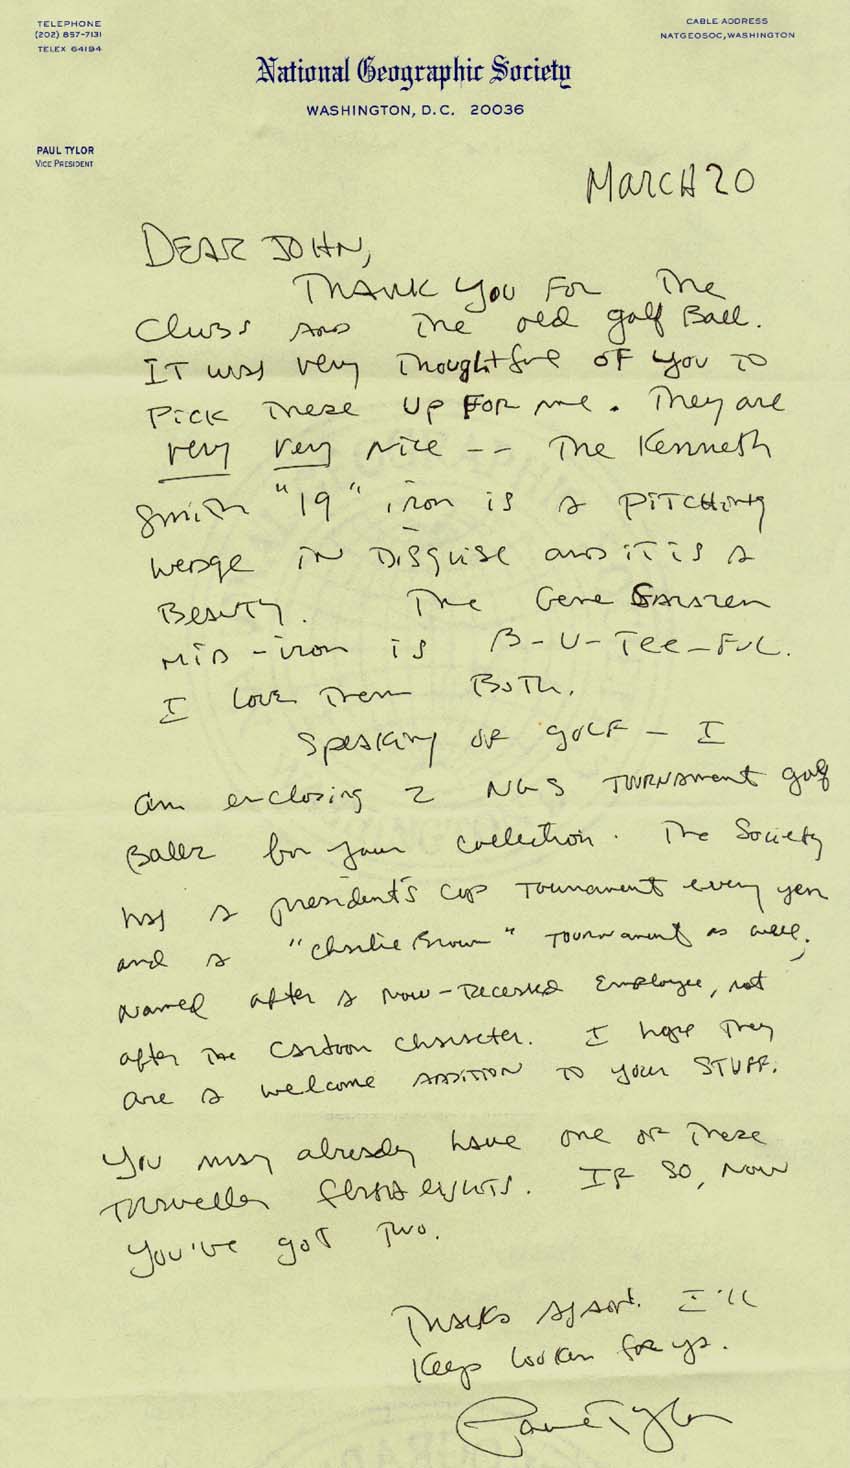 TELEPHONE
(202) 857-7131
TELEX 64194
CABLE ADDRESS
NATGEOSOC, WASHINGTON
National Geographic Society
WASHINGTON, D.C. 20036
PAUL TYLOR
VICE PRESIDENT
MARCH 20
DEAR JOHN,
THANK YOU FOR THE
Clubs AND THE old golf Ball.
IT WAS very Thoughtful OF YOU TO
PICK THESE UP FOR me. They are
very very nice -- The Kenneth
Smith "19" iron is a PITCHING
wedge IN DISGUISE AND IT IS A
BEAUTY. The Gene Sarazen
MID-iron is B-U-Tee-FUL.
I love Them BOTH.
Speaking OF GOLF - I
am enclosing 2 NGS TOURNAMENT golf
Balls for your collection. The Society
has a president's Cup Tournament every year
and a "Charlie Brown" Tournament as well,
Named after a now-deceased Employee, not
after THE Cartoon Character. I hope They
are a welcome ADDITION TO your STUFF.
You may already have one OF These
Traveller flashlights. IF SO, NOW
You've got Two.
Thanks again. I'll
Keep lookin for ya.
Paul Tylor